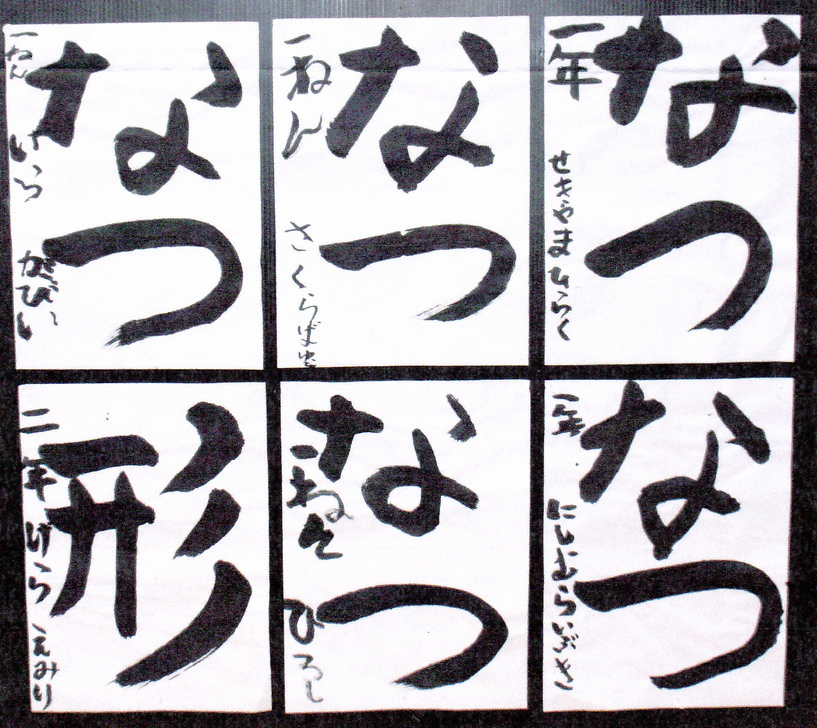 なつ
一年
せきやまひらく
なつ
一ねん
さくらば
なつ
一ねん
なつ
一年
にしむらいぶき
なつ
一ねん
ひろし
形
二年
げら えみり